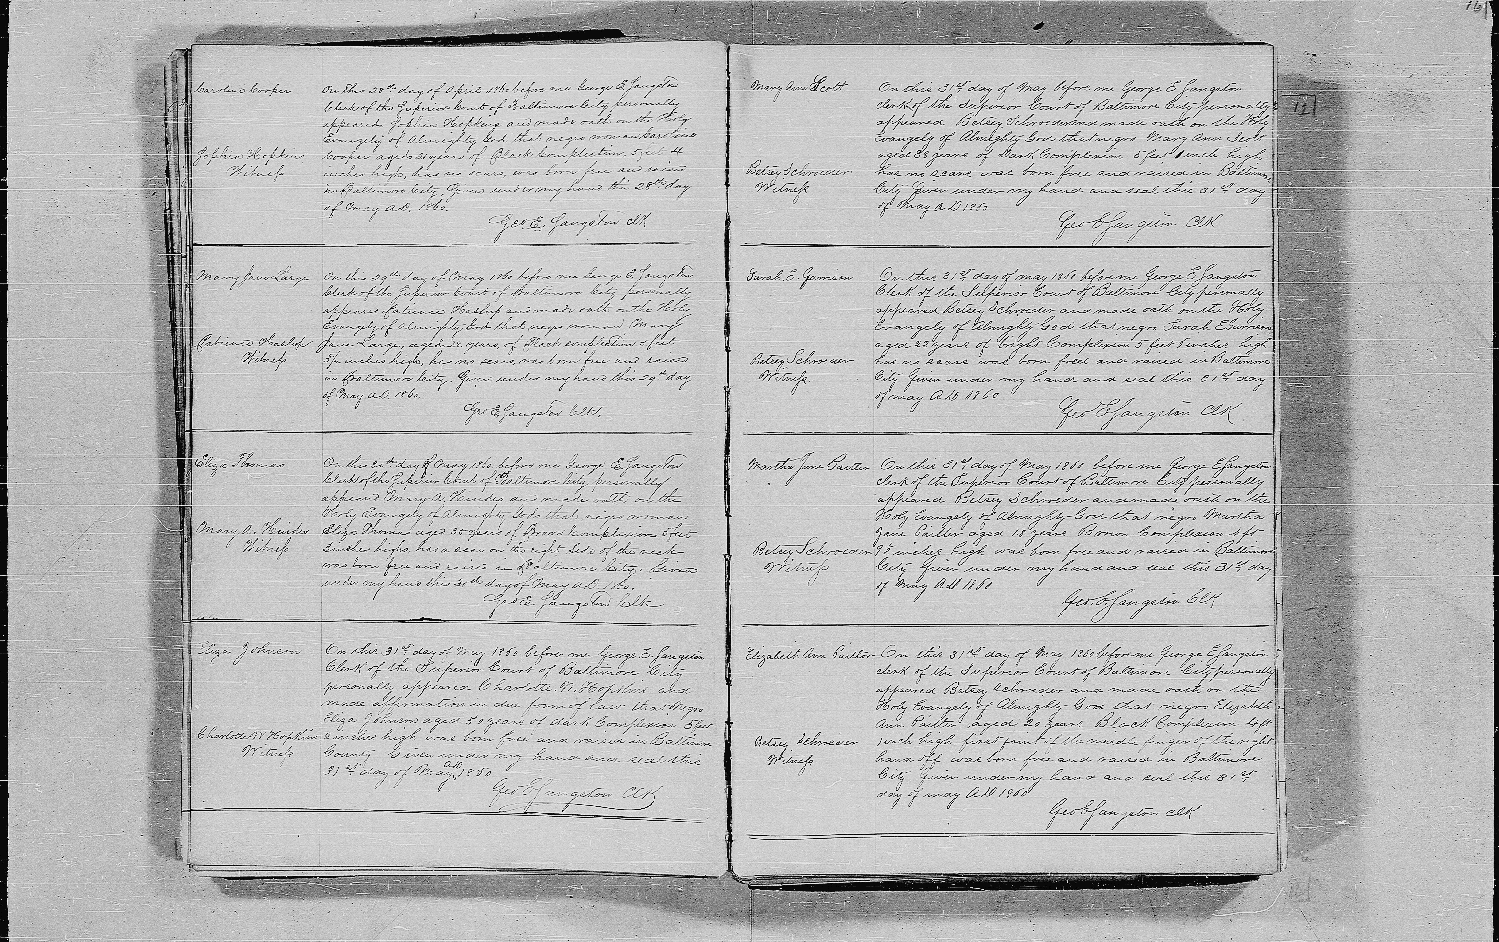 Caroline Cooper
Hopkins
Witness
On this 28th day of April 1860 before me George E. Sangston
Clerk of the Superior Court of Baltimore City personally
appeared Hopkins and made oath on the Holy
Evangely of Almighty God that negro woman Caroline
Cooper aged years of Black Complection 5 feet 4
inches high, has no scars, was born free and raised
in Baltimore City. Given under my hand this 28th day
of May A.D. 1860.
Geo. E. Sangston Clk
Mary Jane Large
Witness
On this 29th day of May 1860 before me George E. Sangston
Clerk of the Superior Court of Baltimore City personally
appeared and made oath on the Holy
Evangely of Almighty God that negro woman Mary
Jane Large, aged years, of Black complection feet
inches high, has no scars, was born free and raised
in Baltimore City. Given under my hand this 29th day
of May A.D. 1860.
Geo E. Sangston Clk.
Eliza Thomas
Mary A.
Witness
On this day of May 1860 before me George E Sangston
Clerk of the Superior Court of Baltimore City personally
appeared Mary A. and made oath on the
Holy Evangely of Almighty God that negro woman
Eliza Thomas aged years of Brown Complection 5 feet
inches high, has a scar on the right side of the neck
was born free and raised in Baltimore City. Given
under my hand this day of May A.D. 1860.
Geo E. Sangston Clk
Eliza Johnson
Charlotte W Hopkins
Witness
On this 31st day of May 1860 before me George E. Sangston
Clerk of the Superior Court of Baltimore City
personally appeared Charlotte W. Hopkins and
made affirmation in due form of law that Negro
Eliza Johnson aged years of dark Complexion 5 feet
inches high was born free and raised in Baltimore
County Given under my hand and seal this
31st day of May AD 1860
Geo E Sangston Clk
Mary Ann Scott
Betsey Schroeder
Witness
On this 31st day of May before me George E Sangston
clerk of the Superior Court of Baltimore City Personally
appeared Betsey Schroeder and made oath on the Holy
Evangely of Almighty God that negro Mary Ann Scott
aged 38 years of Dark Complexion 5 feet 1 inch high
has no scars was born free and raised in Baltimore
City Given under my hand and seal this 31st day
of May A.D 1860
Geo E Sangston Clk
Sarah E.
Betsey Schroeder
Witness
On this 31st day of May 1860 before me George E Sangston
Clerk of the Superior Court of Baltimore City personally
appeared Betsey Schroeder and made oath on the Holy
Evangely of Almighty God that negro Sarah E
aged 22 years of Light Complexion 5 feet inches high
has no scars was born free and raised in Baltimore
City Given under my hand and seal this 31st day
of May A.D 1860
Geo E Sangston Clk
Martha Jane
Betsey Schroeder
Witness
On this 31st day of May 1860 before me George E Sangston
clerk of the Superior Court of Baltimore City personally
appeared Betsey Schroeder and made oath on the
Holy Evangely of Almighty God that negro Martha
Jane aged 18 years Brown Complexion feet
inches high was born free and raised in Baltimore
City Given under my hand and seal this 31st day
of May A.D 1860
Geo E Sangston Clk
Elizabeth Ann
Betsey Schroeder
Witness
On this 31st day of May 1860 before me George E Sangston
clerk of the Superior Court of Baltimore City personally
appeared Betsey Schroeder and made oath on the
Holy Evangely of Almighty God that negro Elizabeth
Ann aged 20 years Black Complexion feet
inch high first joint of the middle finger of the right
hand off was born free and raised in Baltimore
City Given under my hand and seal this 31st
day of May A.D 1860
Geo E Sangston Clk